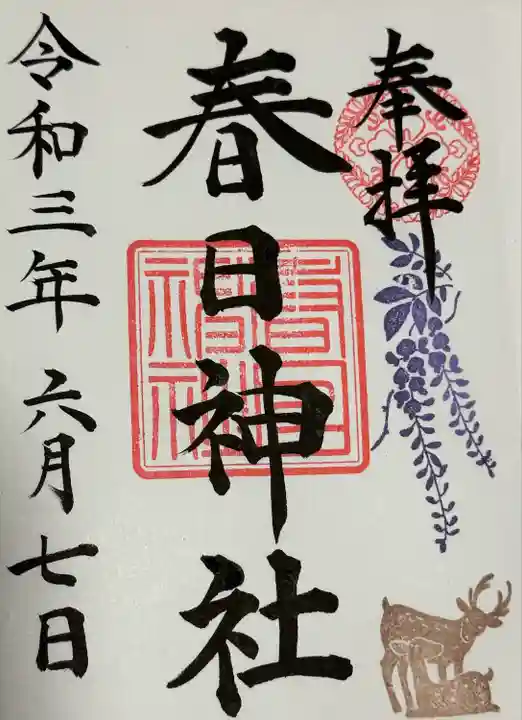 奉拝
春日神社
令和三年 六月 七日